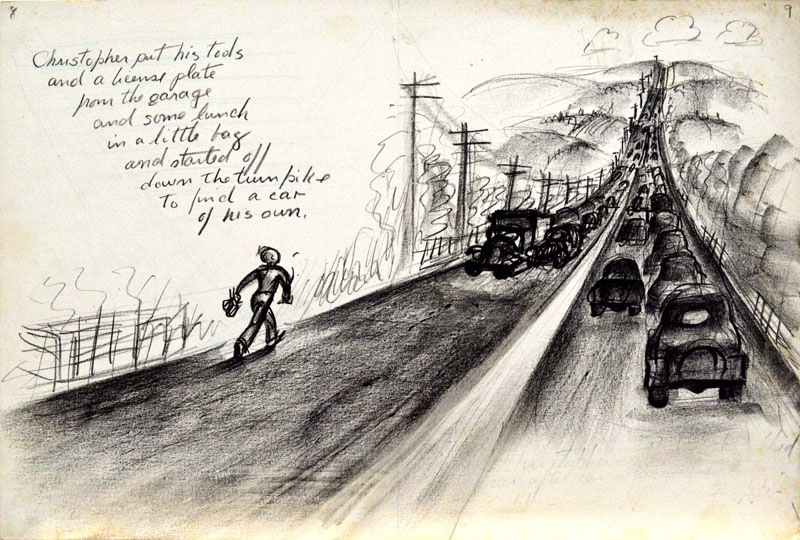 8
9
Christopher put his tools
and a license plate
from the garage
and some lunch
in a little bag
and started off
down the turnpike
to find a car
of his own.